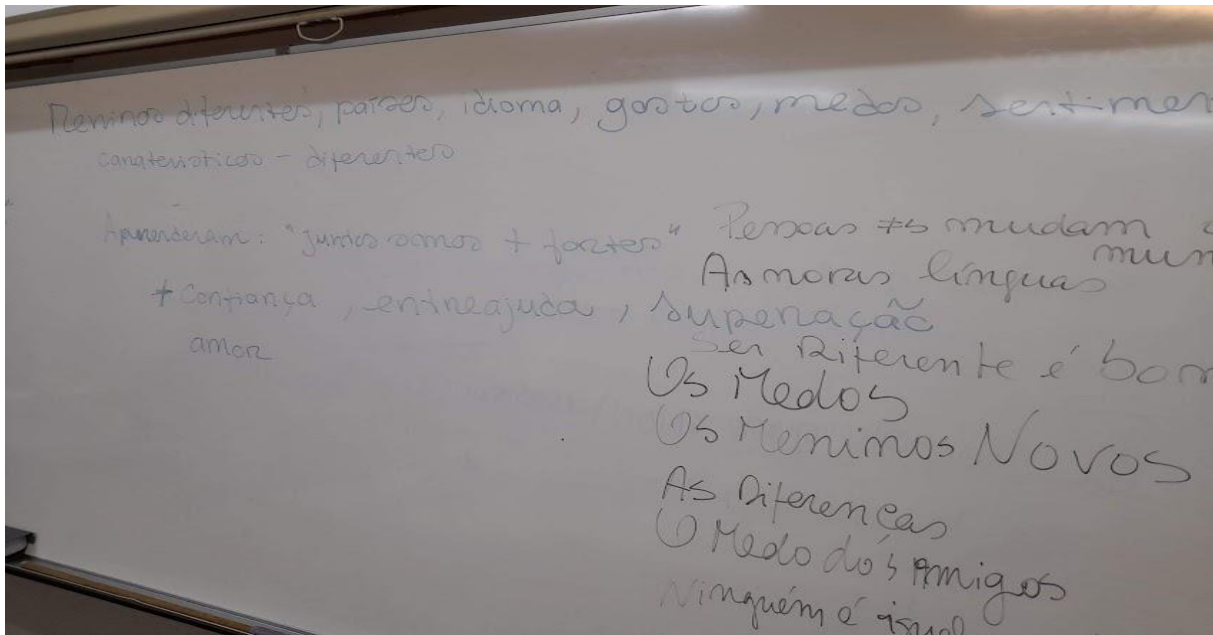 Meninos diferentes, países, idioma, gostos, medos, sentimen
características - diferentes
Aprenderam: "juntos somos + fortes"
+ Confiança, entreajuda, superação
amor
Pessoas ≠s mudam
mun
As novas línguas
Ser Diferente é bom
Os Medos
Os Meninos Novos
As Diferenças
O Medo dos Amigos
Ninguém é igual